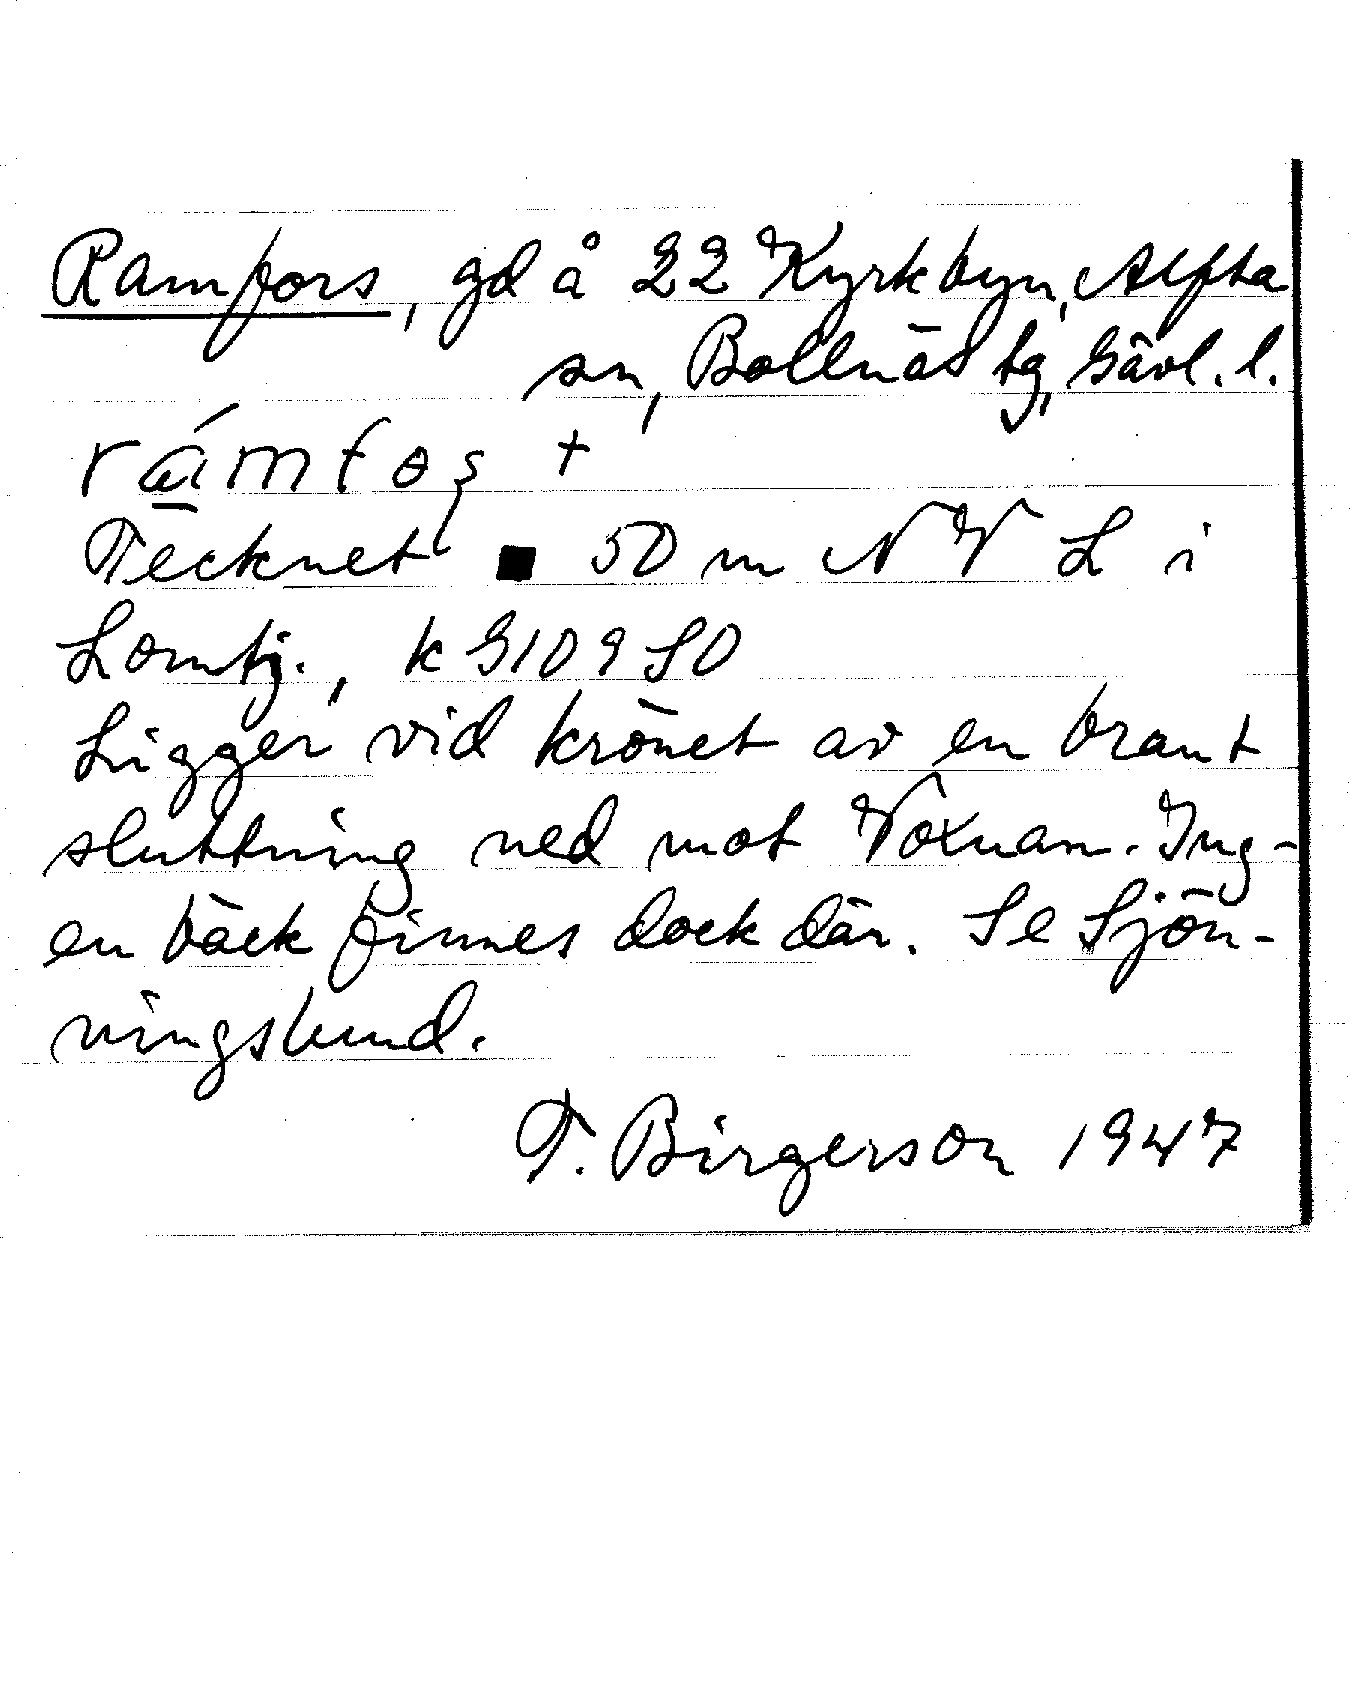 Ramfors, gd å 22 Kyrkbyn, Alfta
sn, Bollnäs tg, Gävl. l.
rámfoş +
Tecknet ■ 50 m NV L i
Lomtj., k G109 SO
Ligger vid krönet av en brant
sluttning ned mot Voxnan. Ing-
en bäck finnes dock där. Se Sjön-
ningslund.
T. Birgerson 1947